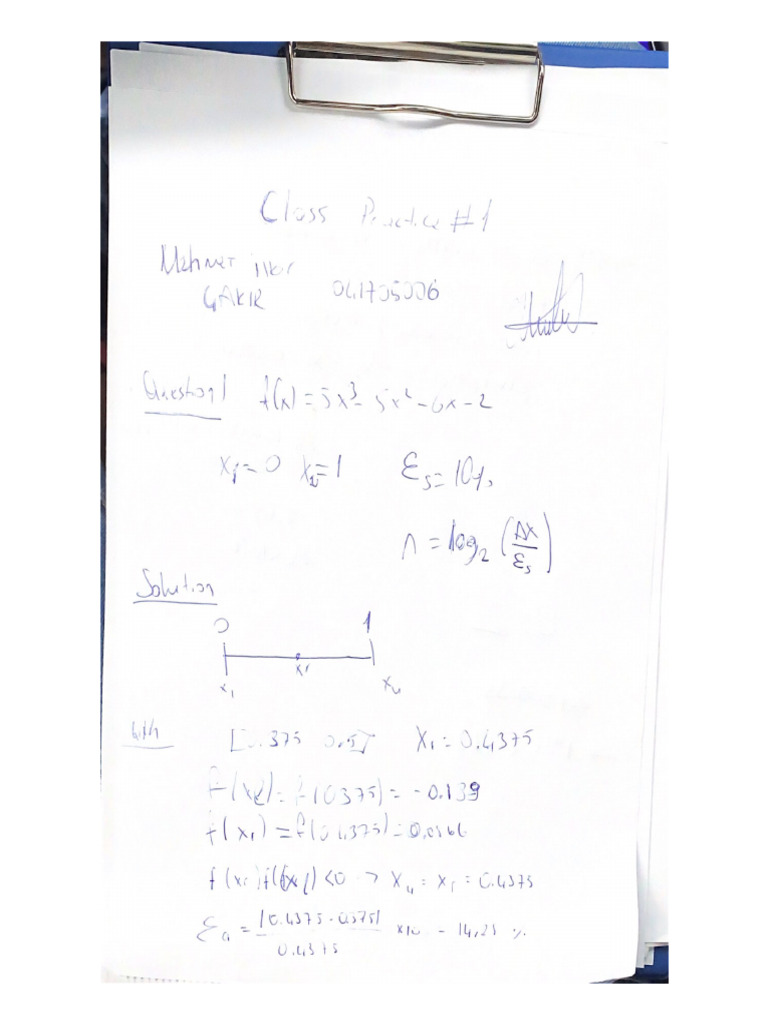 Class Practice #1
Mehmet ilker
ÇAKIR 041705006
Question 1 f(x) = 5x³ - 5x² - 6x - 2
x₁ = 0 xᵤ = 1 Ɛₛ = 10%
n = log₂ (Δx/Ɛₛ)
Solution
0 1
x₁ xᵣ xᵤ
[0.375 0.5] xᵣ = 0.4375
f(xₗ) = f(0375) = -0.139
f(xᵣ) = f(0.4375) = 0.0366
f(xᵣ)f(xₗ) <0 → xᵤ = xᵣ = 0.4375
Ɛₐ = |0.4375 - 0.375| / 0.4375 x10 = 14,23 %